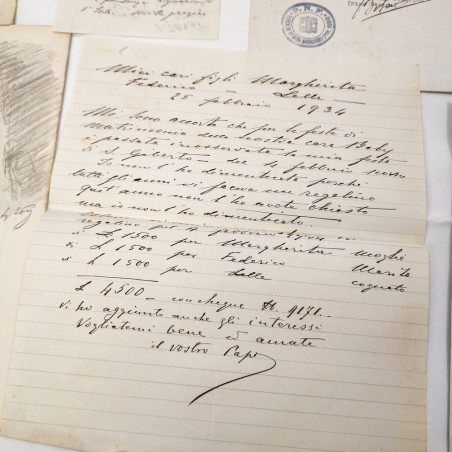 Miei cari figli Margherita
Federico — Lalle —
25 febbraio 1934
Mi sono accorto che per le feste di
matrimonio della nostra cara Baby
è passata inosservata la mia festa
di S. Gaberto del di febbraio scorso
Io non l'ho dimenticato perché
tutti gli anni vi facevo un regalino
quest'anno non l'ho avete chiesto
ma io non l'ho dimenticato.
regalino per
£ 1500 per Margherita moglie
£ 1500 per Federico Marito
£ 1500 per Lalle cognato
£ 4500 — con cheque N. 9171.
Vi ho aggiunto anche gli interessi
Vogliatemi bene ed amate
il vostro Papà
P.N.F.